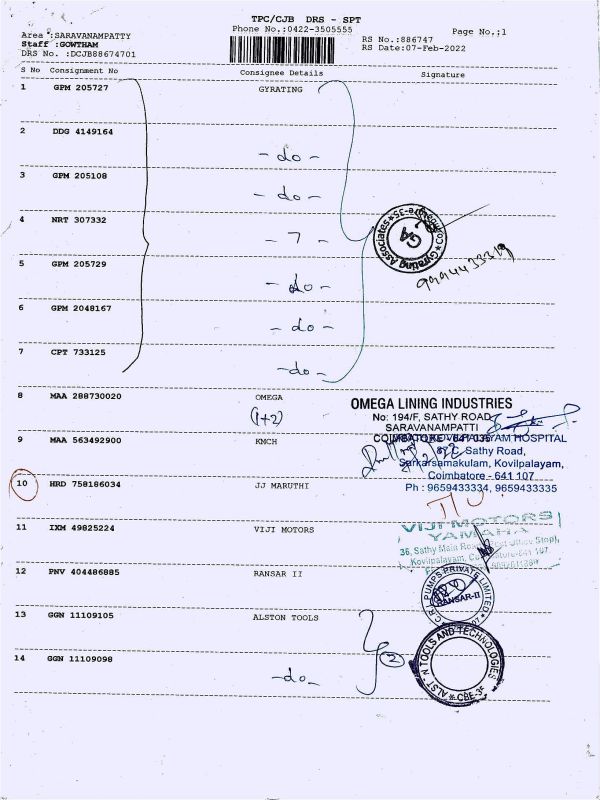 TPC/CJB DRS - SPT
Phone No.:0422-3505555
Page No.;1
Area :SARAVANAMPATTY
Staff :GOWTHAM
DRS No. :DCJB88674701
RS No.:886747
RS Date:07-Feb-2022
S No Consignment No Consignee Details Signature
1 GPM 205727 GYRATING
2 DDG 4149164
- do -
3 GPM 205108
- do -
4 NRT 307332
- 7 -
Gyrating Associates
GA
5 GPM 205729
- do -
9994433319
6 GPM 2048167
- do -
7 CPT 733125
- do -
8 MAA 288730020 OMEGA
(1+2)
OMEGA LINING INDUSTRIES
No: 194/F, SATHY ROAD
SARAVANAMPATTI
9 MAA 563492900 KMCH
HOSPITAL
Sathy Road,
Sarkarsamakulam, Kovilpalayam,
Coimbatore - 641 107
Ph : 9659433334, 9659433335
10 HRD 758186034 JJ MARUTHI
11 IXM 49825224 VIJI MOTORS
VIJI MOTORS
YAMAHA
36, Sathy Main Road
Kovilpalayam,
12 PNV 404486885 RANSAR II
PUMPS PRIVATE LIMITED
RANSAR-II
13 GGN 11109105 ALSTON TOOLS
2
TOOLS AND TECHNOLOGIES
CBE-35
14 GGN 11109098
- do -